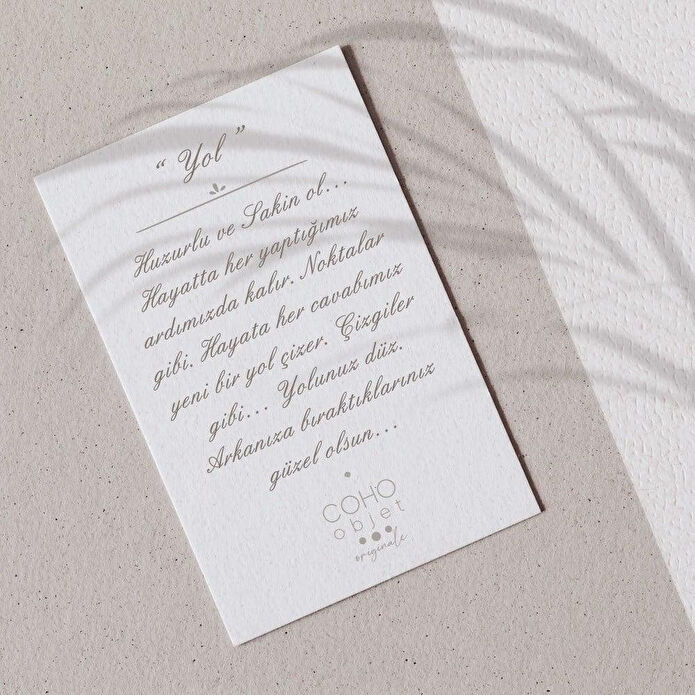 “ Yol ”
Huzurlu ve Sakin ol...
Hayatta her yaptığımız
ardımızda kalır. Noktalar
gibi. Hayata her cavabımız
yeni bir yol çizer. Çizgiler
gibi... Yolunuz düz.
Arkanıza bıraktıklarınız
güzel olsun...
COHO
objet
originale